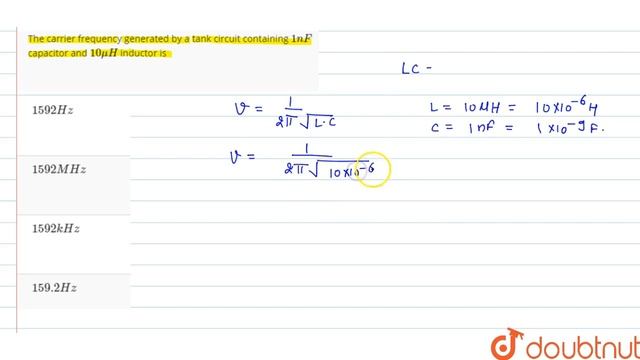 The carrier frequency generated by a tank circuit containing 1nF
capacitor and 10μH inductor is
1592Hz
1592MHz
1592kHz
159.2Hz
LC -
ν = 1/2π√L·C
L = 10μH = 10×10⁻⁶H
C = 1nF = 1×10⁻⁹F.
ν = 1/2π√10×10⁻⁶
doubtnut